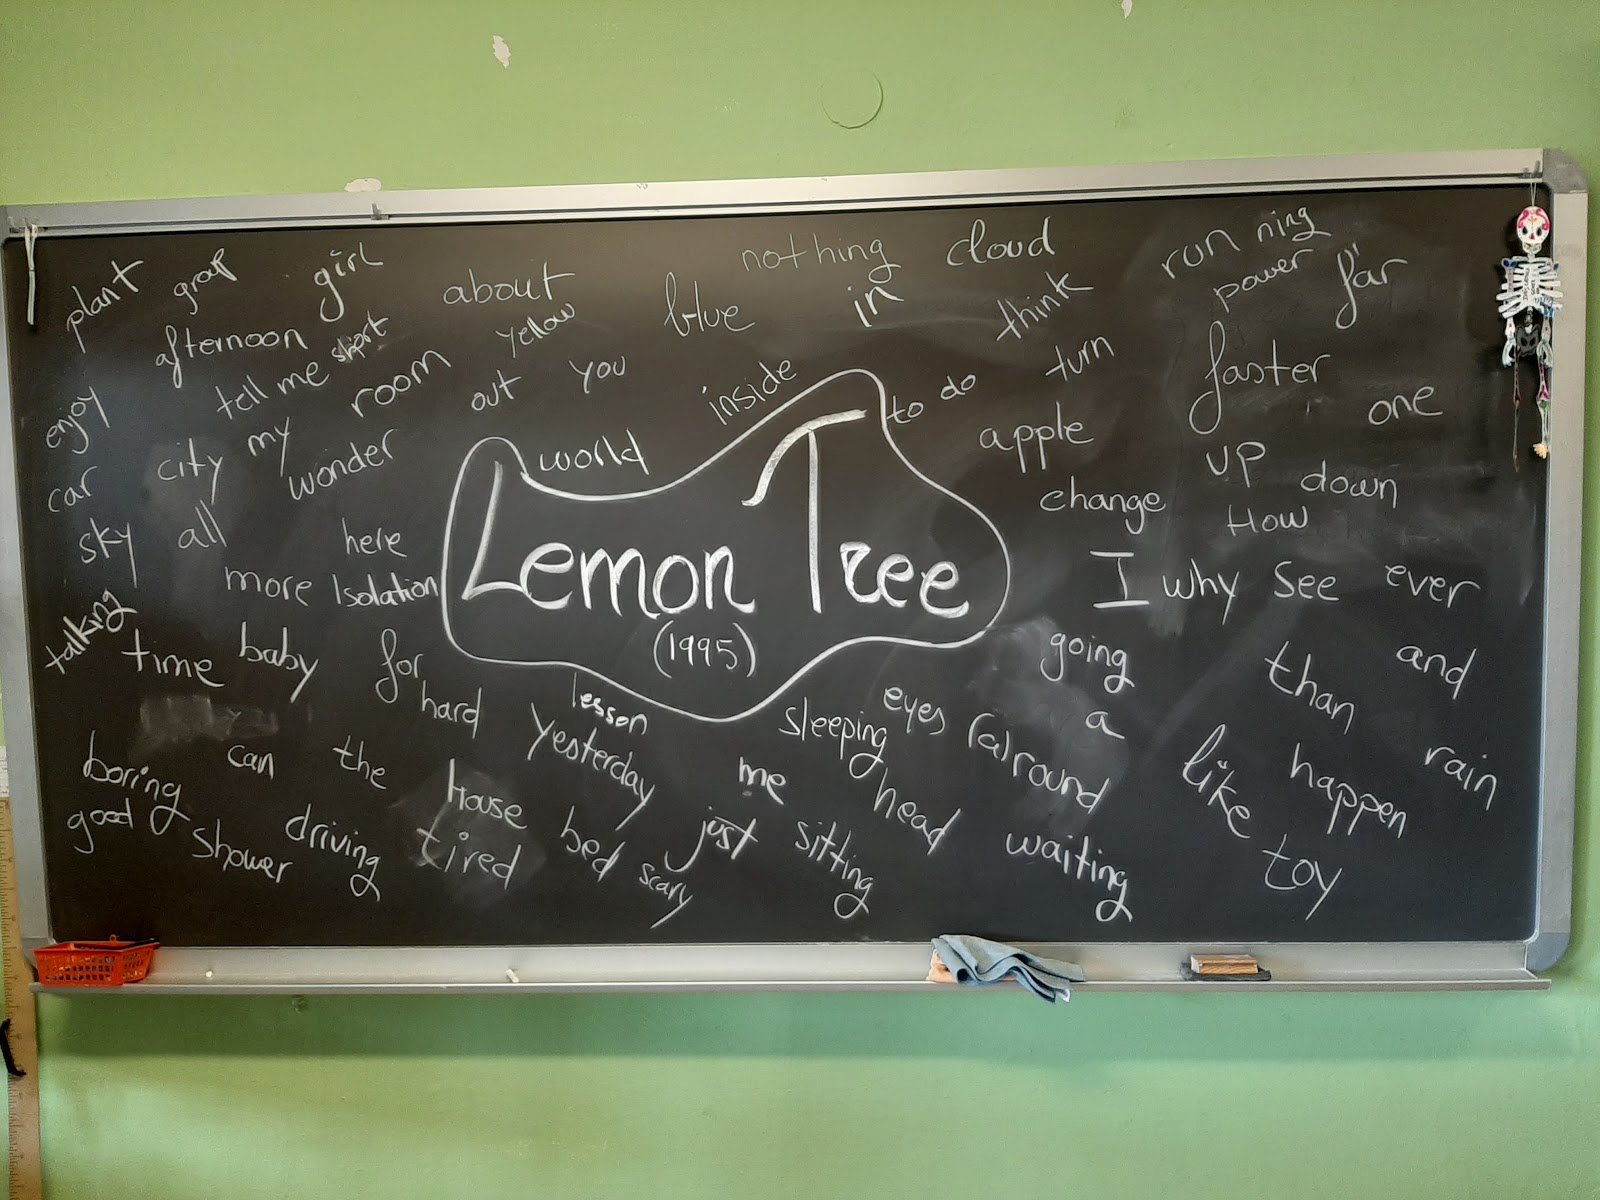 plant group girl about nothing cloud running
afternoon blue in think power far
enjoy tell me yellow
my room out you inside to do turn faster
car city wonder world apple up one
sky all here change How down
more Isolation Lemon Tree I why see ever
talking time baby for (1995) going than and
hard lesson sleeping eyes (a)round a
boring can the House yesterday me head like happen rain
good shower driving tired bed scary just sitting waiting toy